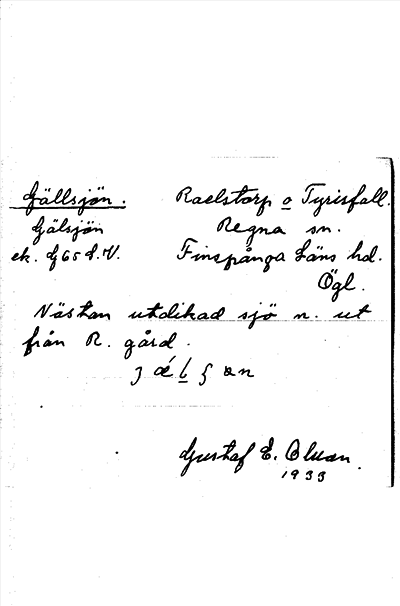 Gällsjön. Raelstorp o Tyrisfall.
Gälsjön Regna sn.
ek. bl 65 d. V. Finspånga Läns hd.
Ögl.
Nästan utdikad sjö n. ut
från R. gård.
Gustaf E. Olsson
1933